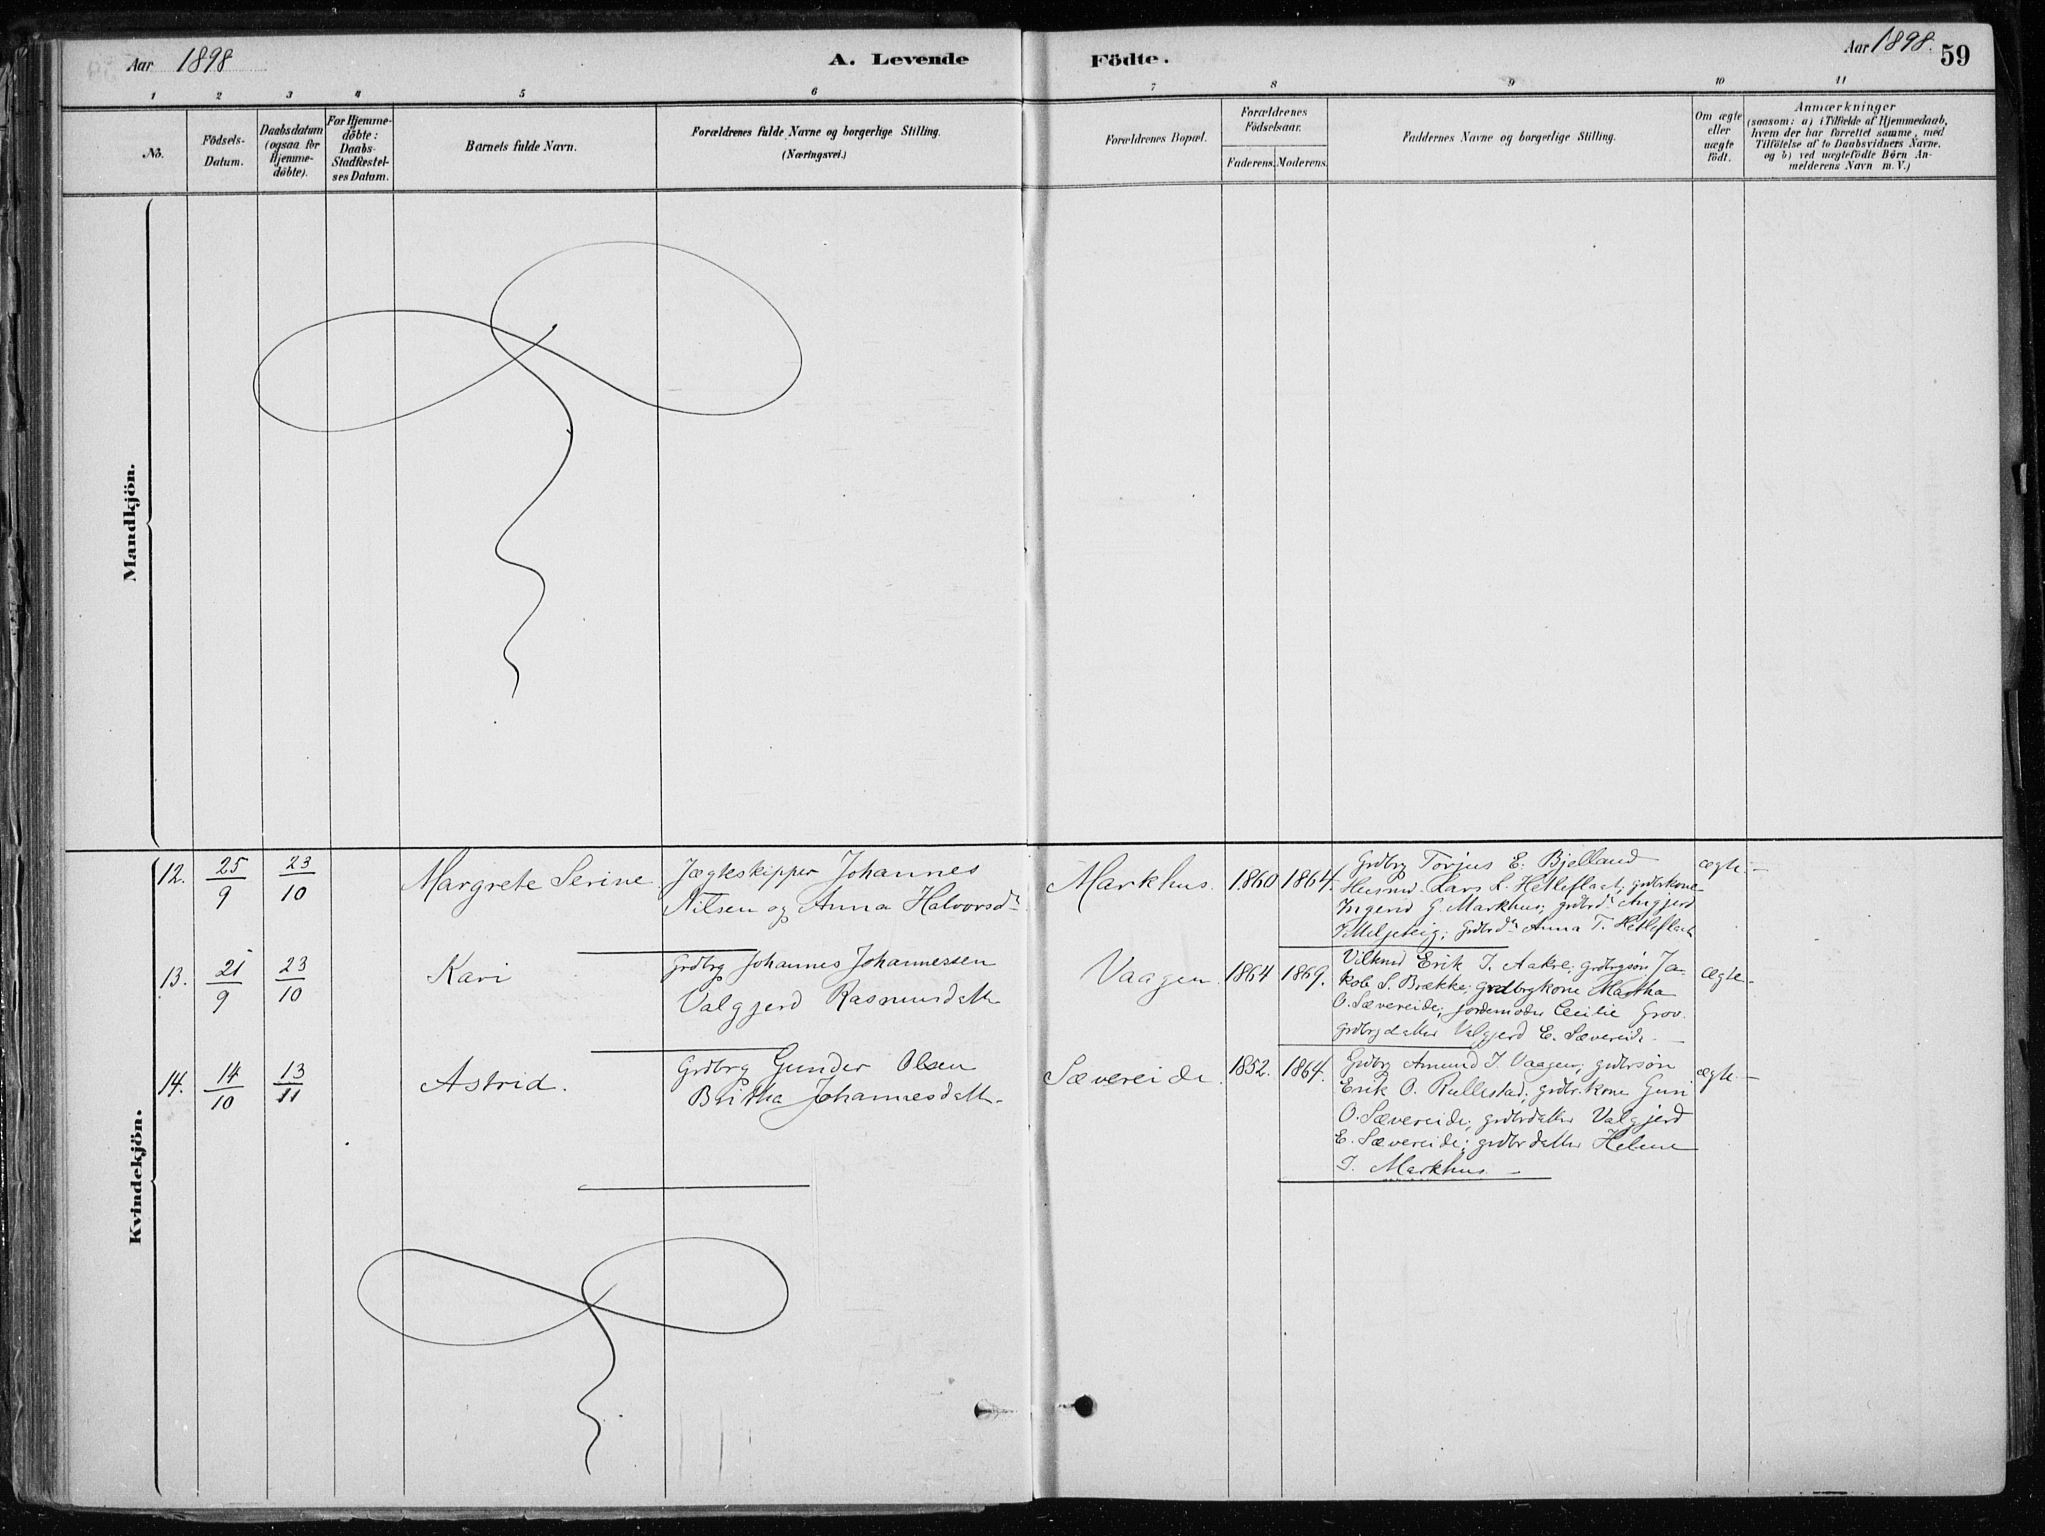 Aar 1898
A. Levende Födte.
Aar 1898. 59
1 2 3 4 5 6 7 8 9 10 11
No.
Födsels-
Datum.
Daabsdatum
(ogsaa for
Hjemme-
döbte).
For Hjemme-
döbte:
Daabs-
Stadfæstel-
ses Datum.
Barnets fulde Navn.
Forældrenes fulde Navne og borgerlige Stilling.
(Næringsvei.)
Forældrenes Bopæl.
Forældrenes
Födselsaar.
Faderens. Moderens.
Faddernes Navne og borgerlige Stilling.
Om ægte
eller
uægte
födt.
Anmærkninger
(saasom: a) i Tilfælde af Hjemmedaab,
hvem der har forrettet samme, med
Tilföielse af to Daabsvidners Navne,
og b) ved uægtefödte Börn An-
melderens Navn m. V.)
Mandkjön.
Kvindekjön.
12. 25/9 23/10 Margrete Serine
Jægteskipper Johannes
Nilsen og Anna Halvorsdr
Markhus. 1860 1864.
Grdbrg Torjus E. Bjelland
Husmd. Lars L. Hetleflaat, grdbrkone
Ingerid G. Markhus; grdbrdr Angjerd
Miljeteig; grdbrdr Anna T. Hetleflaat
ægte.
13. 21/9 23/10 Kari
Grdbrg Johannes Johannessen
Valgjerd Rasmusdatter
Vaagen 1864 1869.
Erik T. Aakre; grdbrgsön Ja-
kob S. Brække; grdbrgkone Martha
O. Sævereide; jordemoder Cecilie Grov.
grdbrgdatter Valgjerd E. Sævereide.
ægte.
14. 14/10 13/11 Astrid.
Grdbrg Gunder Olsen
Britha Johannesdatter.
Sævereide 1852. 1864.
Grdbrg Amund I. Vaagen; grdbrsön
Erik O. Rullestad; grdbr.kone Guri
O. Sævereide, grdbrdatter Valgjerd
E. Sævereide; grdbrdatter Helene
I. Markhus.
ægte.